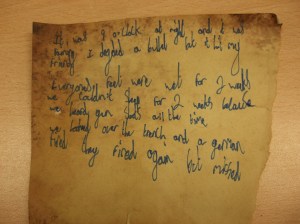 It was 9 o'clock at night and it was
I doged a bullet but it hit my
friend
Everyones feet were wet for 2 weeks
we couldn't for 2 weeks because
we heard gun all the time
we looked over the trench and a german
fired they fired again but missed